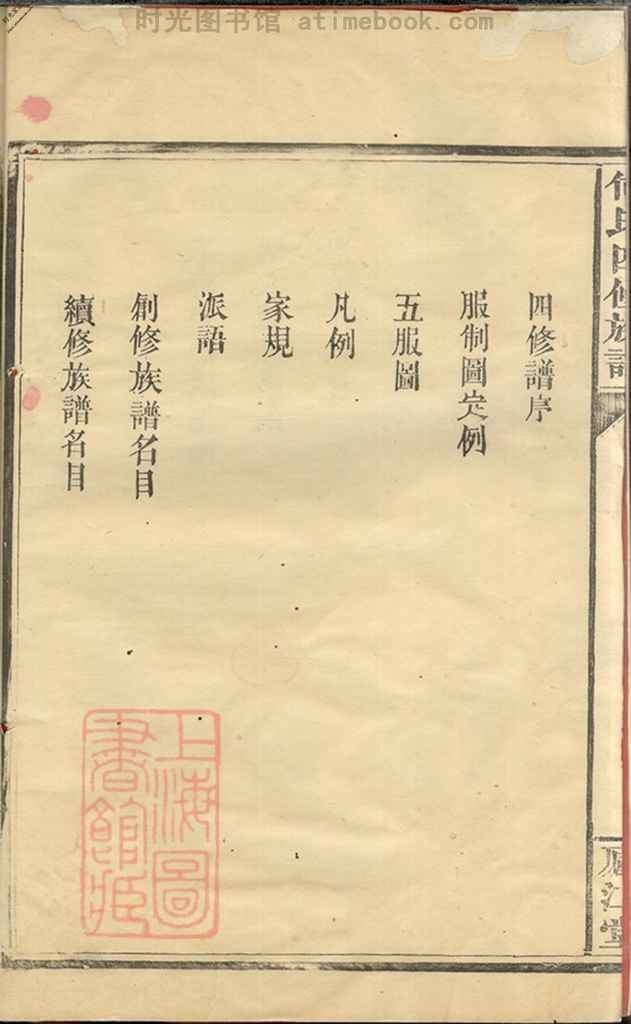 时光图书馆 atimebook.com
何氏四修族譜
四修譜序
服制圖定例
五服圖
凡例
家規
派語
創修族譜名目
續修族譜名目
上海圖
書館藏
廬江堂